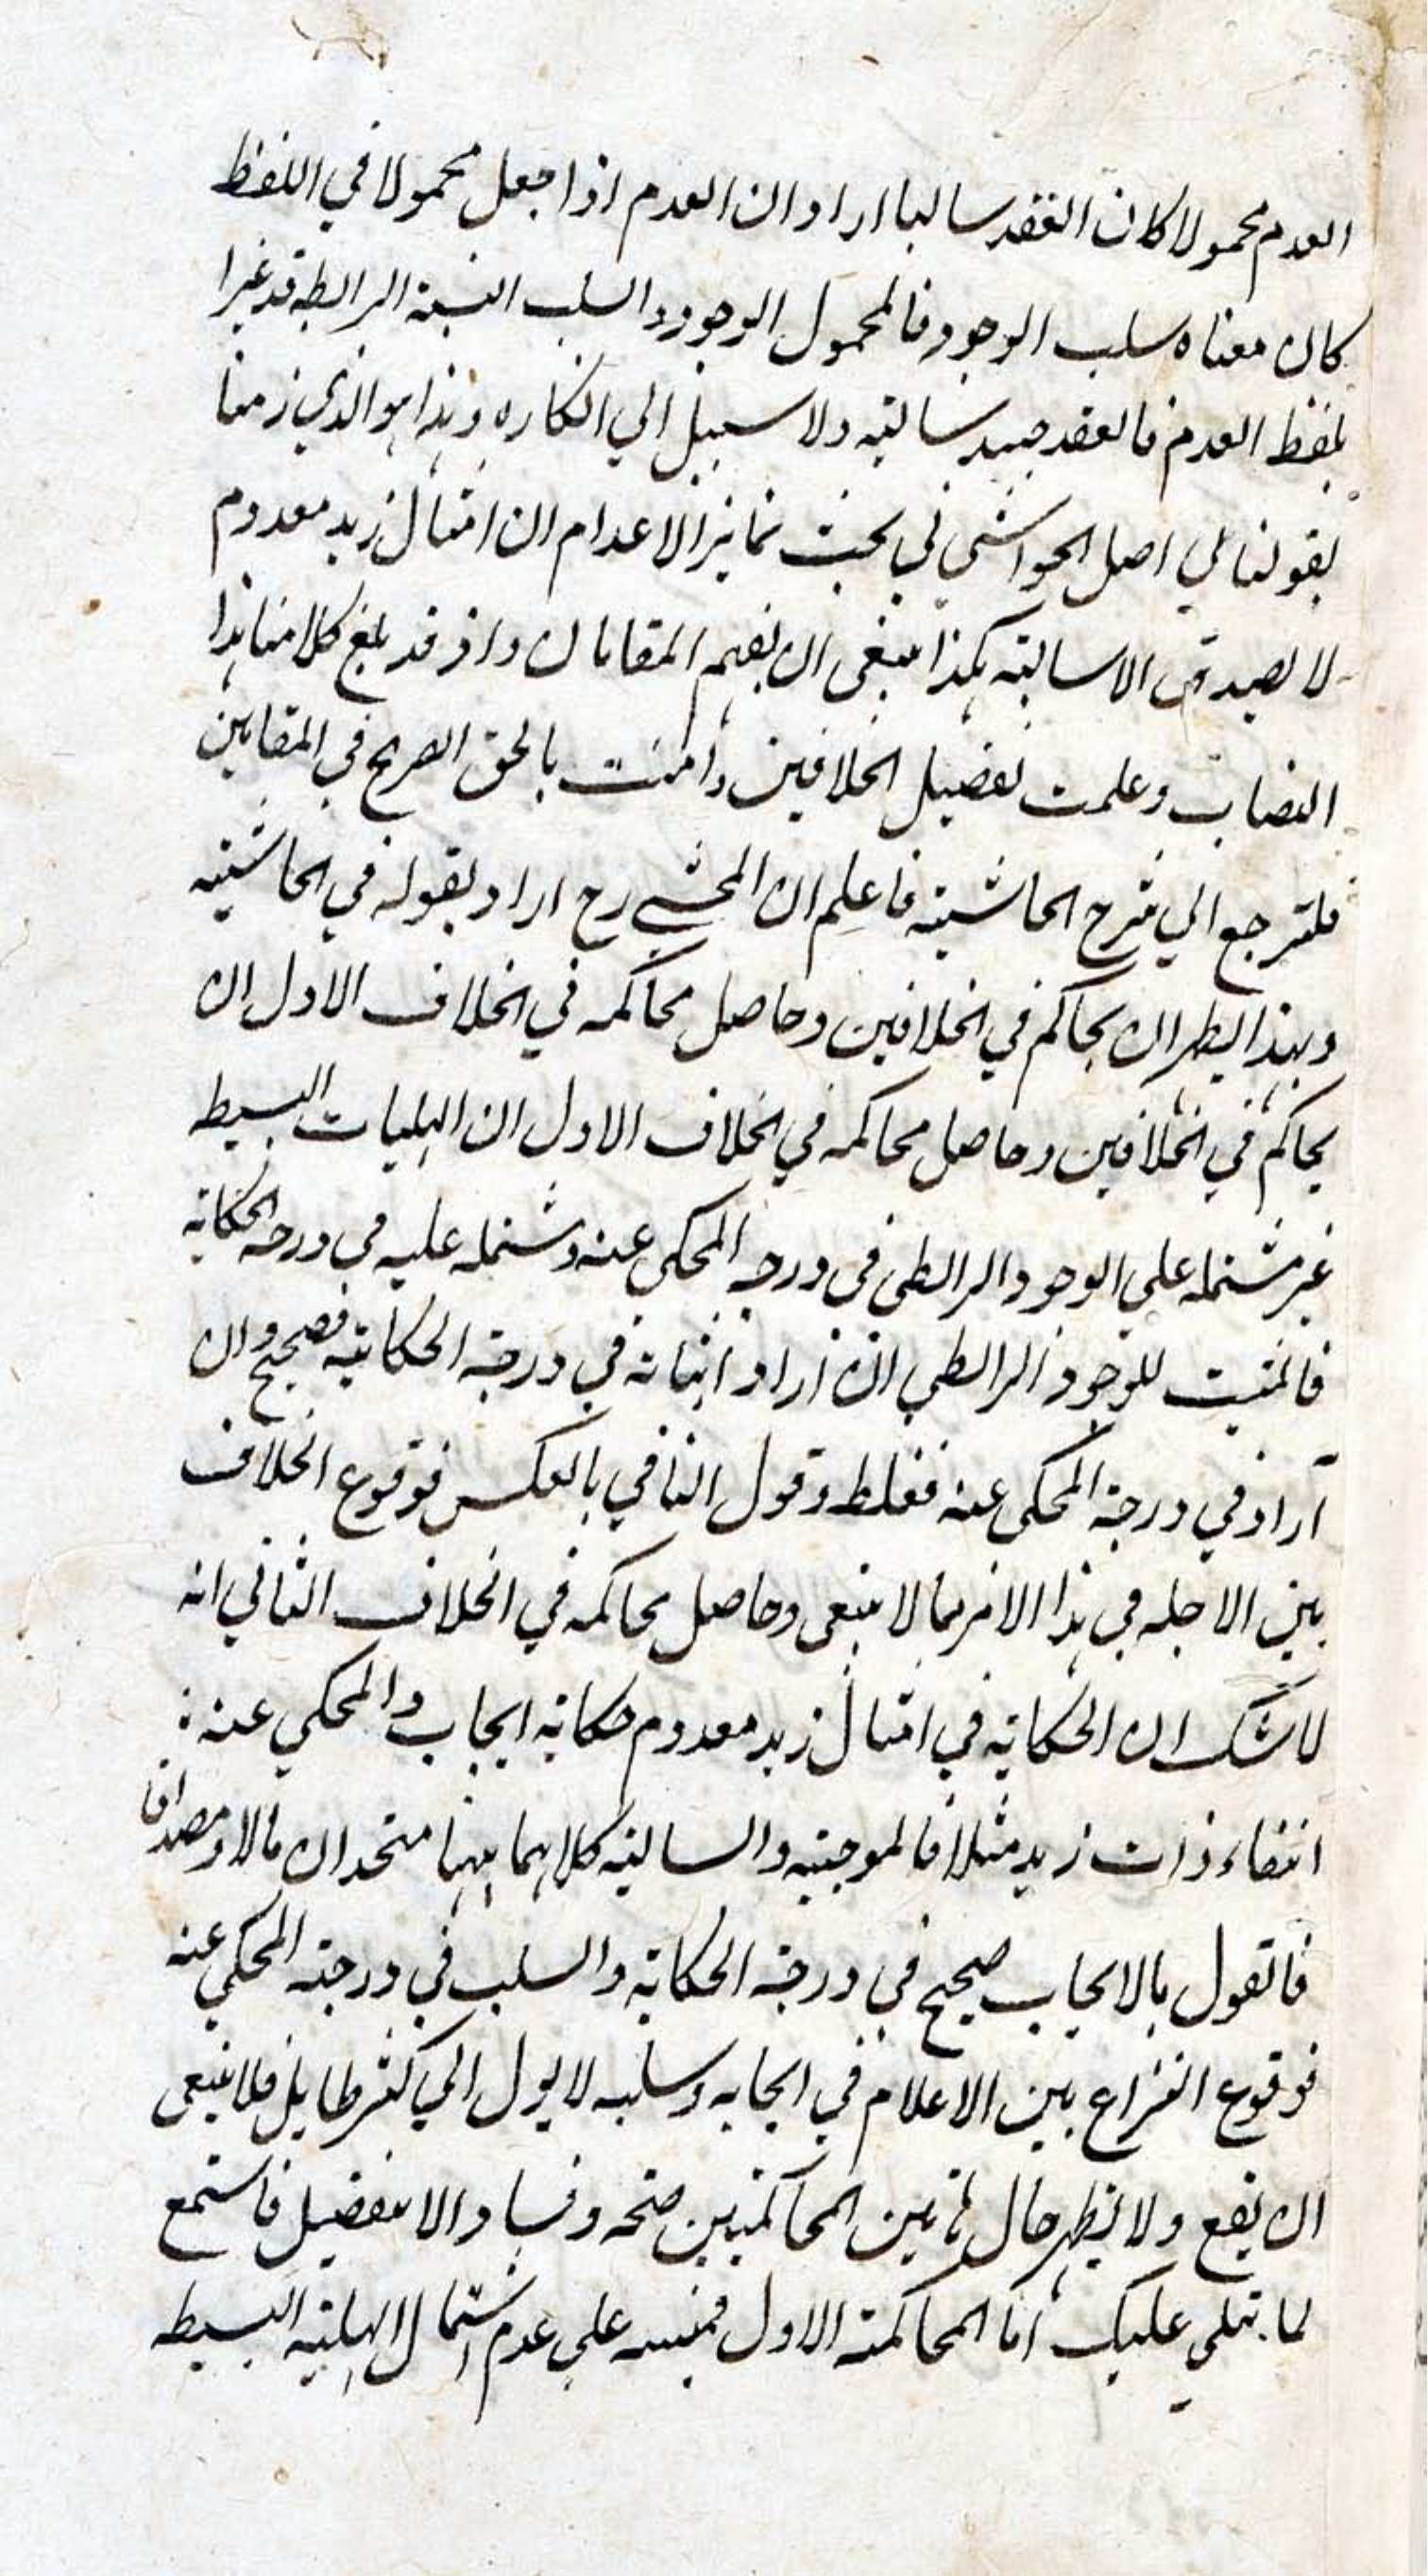 العدم محمولا كان العقد سالبا اراد ان العدم اذا جعل محمولا في اللفظ
كان معناه سلب الوجود فالمحمول الوجود والسلب النسبة الرابطة قد غيرا
بلفظ العدم فالعقد سالبة ولا سبيل الي انكاره وهذا هو الذي زمنا
بقولنا في اصل الحواشي في بحث تمايز الاعدام ان امثال زيد معدوم
لا يصدق الا سالبة هكذا ينبغي ان يفهم المقامان واذ قد بلغ كلامنا هذا
النصاب وعلمت تفصيل الخلافين وامنت بالحق الصريح في المقامين
فلترجع الي شرح الحاشية فاعلم ان المحشي رح اراد بقوله في الحاشية
وبهذا يظهر ان يحاكم في الخلافين وحاصل محاكمه في الخلاف الاول ان
يحاكم في الخلافين وحاصل محاكمه في الخلاف الاول ان الهليات البسيطه
غير مشتمله علي الوجود الرابطي في درجه المحكي عنه ومشتمله عليه في درجه الحكاية
فالمثبت للوجود الرابطي ان اراد اثباته في درجة الحكاية فصحيح وان
اراد في درجة المحكي عنه فغلط وقول النافي بالعكس فوقوع الخلاف
بين الاجله في هذا الامر مما لا ينبغي وحاصل محاكمه في الخلاف الثاني انه
لا شك ان الحكاية في امثال زيد معدوم حكاية ايجاب والمحكي عنه :
انتفاء ذات زيد مثلا فالموجبة والسالبة كلاهما ههنا متحدان مالا ومصداقا
فالقول بالايجاب صحيح في درجة الحكاية والسلب في درجة المحكي عنه
فوقوع النزاع بين الاعلام في ايجابه وسلبه لا يول الي كثير طايل فلا ينبغي
ان يقع ولا يظهر حال هاتين المحاكمتين صحه وفسادا الا بتفصيل فاستمع
لما يتلي عليك اما المحاكمة الاول فمبنيه علي عدم اشتمال الهلية البسيطه